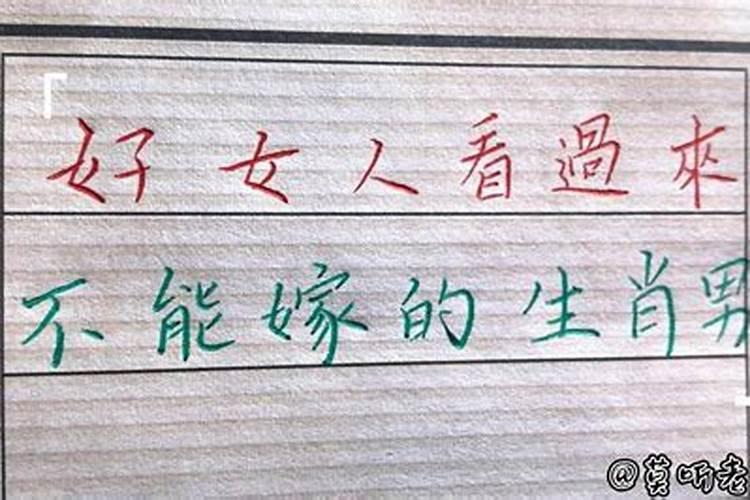 好女人看過來
不能嫁的生肖男
@莫听老